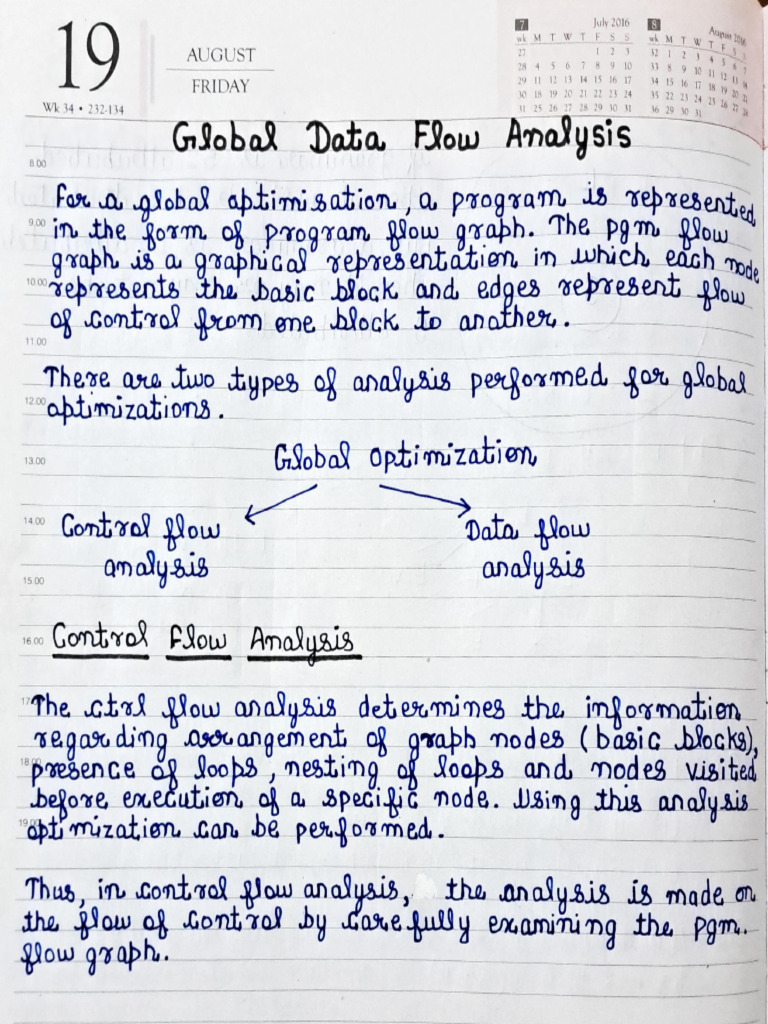 19
AUGUST
FRIDAY
Wk 34 • 232-134
7 July 2016
wk M T W T F S S
27 1 2 3
28 4 5 6 7 8 9 10
29 11 12 13 14 15 16 17
30 18 19 20 21 22 23 24
31 25 26 27 28 29 30 31
8 August 2016
wk M T W T F S S
32 1 2 3 4 5 6 7
33 8 9 10 11 12 13 14
34 15 16 17 18 19 20 21
35 22 23 24 25 26 27 28
36 29 30 31
Global Data Flow Analysis
8.00
For a global optimisation, a program is represented
9.00 in the form of program flow graph. The pgm flow
graph is a graphical representation in which each node
10.00 represents the basic block and edges represent flow
of control from one block to another.
11.00
There are two types of analysis performed for global
12.00 optimizations.
13.00 Global optimization
14.00 Control flow Data flow
analysis analysis
15.00
16.00 Control Flow Analysis
17.00 The ctrl flow analysis determines the information
regarding arrangement of graph nodes (basic blocks),
18.00 presence of loops, nesting of loops and nodes visited
before execution of a specific node. Using this analysis
19.00 optimization can be performed.
Thus, in control flow analysis, the analysis is made on
the flow of control by carefully examining the pgm.
flow graph.